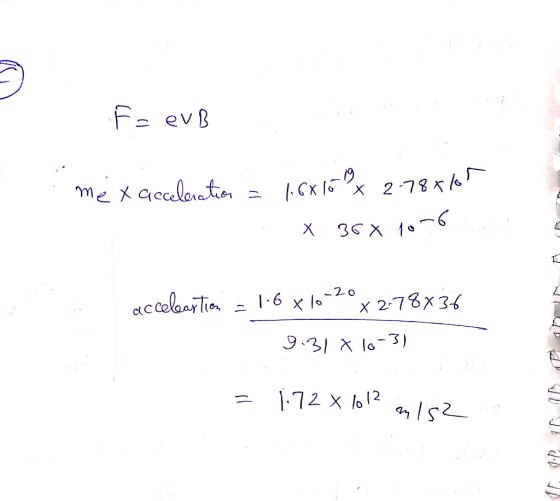 F = evB
me x acceleration = 1.6 x 10^-19 x 2.78 x 10^5
x 36 x 10^-6
acceleartion = 1.6 x 10^-20 x 2.78 x 36
9.31 x 10^-31
= 1.72 x 10^12 m/s2